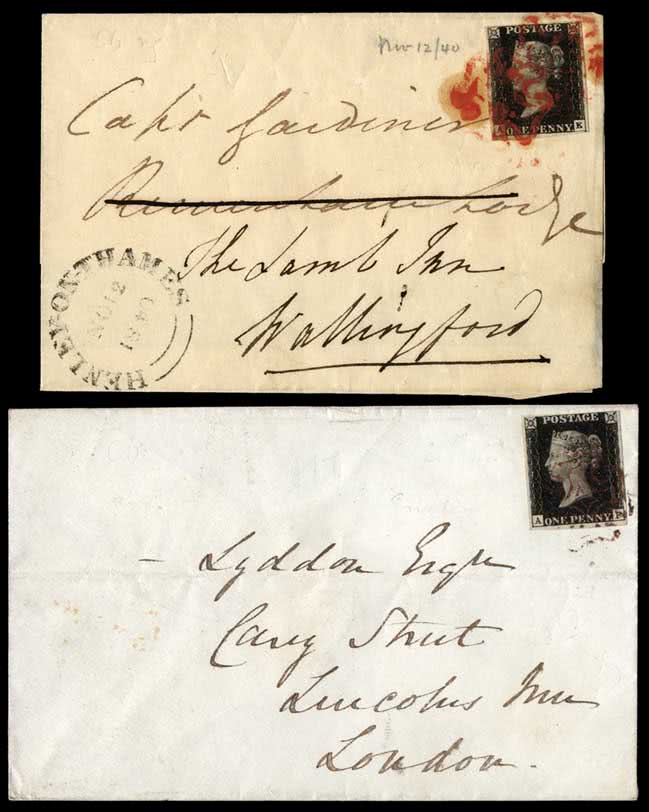 Nov 12/40
POSTAGE
A ONE PENNY K
Capt Gardiner
Lodge
The Lamb Inn
Wallingford
HENLEY-ON-THAMES
NO 12
1840
POSTAGE
A ONE PENNY
Lyddon Esqre
Carey Street
Lincolns Inn
London.